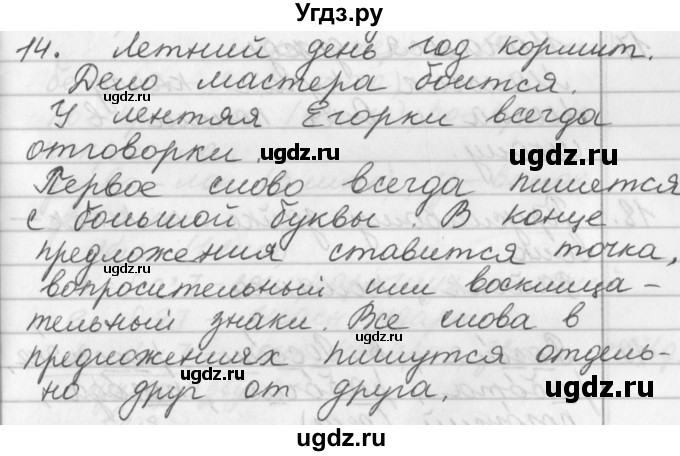 Угдз.ру
14. Летний день год кормит.
Дело мастера боится.
У лентяя Егорки всегда
отговорки.
Первое слово всегда пишется
с большой буквы. В конце
предложения ставится точка,
вопросительный или восклица-
тельный знаки. Все слова в
предложениях пишутся отдель-
но друг от друга.
ugdz.ru
ugdz.ru
ugdz.ru
ugdz.ru
ugdz.ru
ugdz.ru
ugdz.ru
ugdz.ru
ugdz.ru
ugdz.ru
ugdz.ru